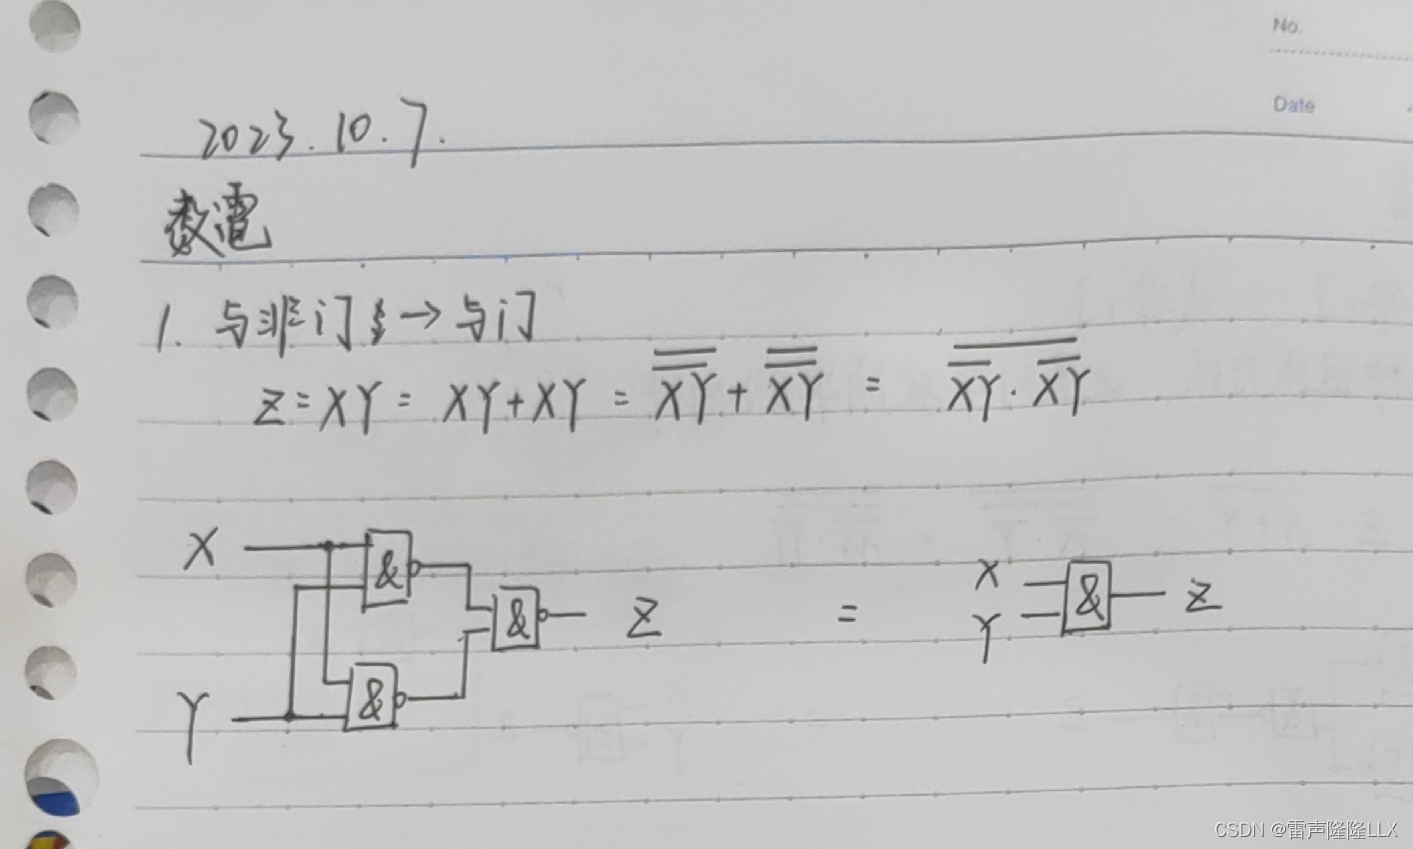 No.
Date
2023.10.7.
数電
1. 与非门 → 与门
Z = XY = XY + XY = \overline{\overline{XY}} + \overline{\overline{XY}} = \overline{\overline{XY} · \overline{XY}}
X & & Z = X Y & Z
Y &
CSDN @雷声隆隆LLX